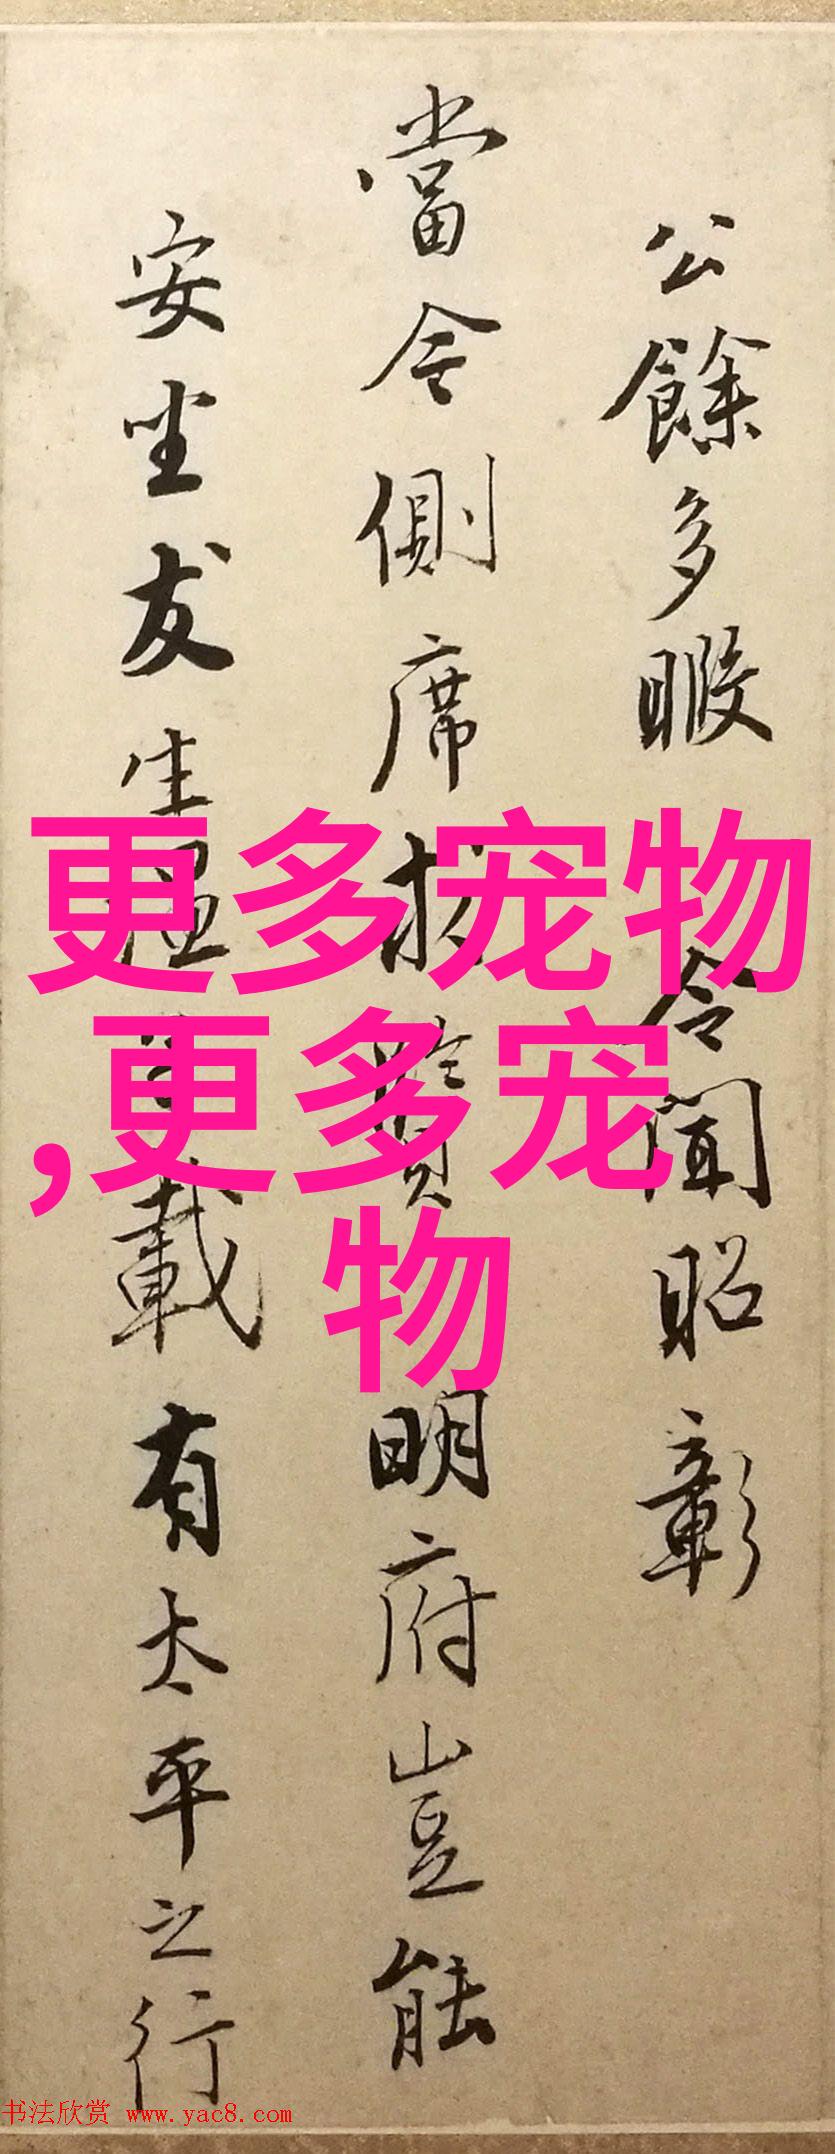 公餘多暇 令聞昭彰
當令側席求賢明府豈能
安坐友生過載有太平之行
更多宠物
,更多宠
物
书法欣赏 www.yac8.com